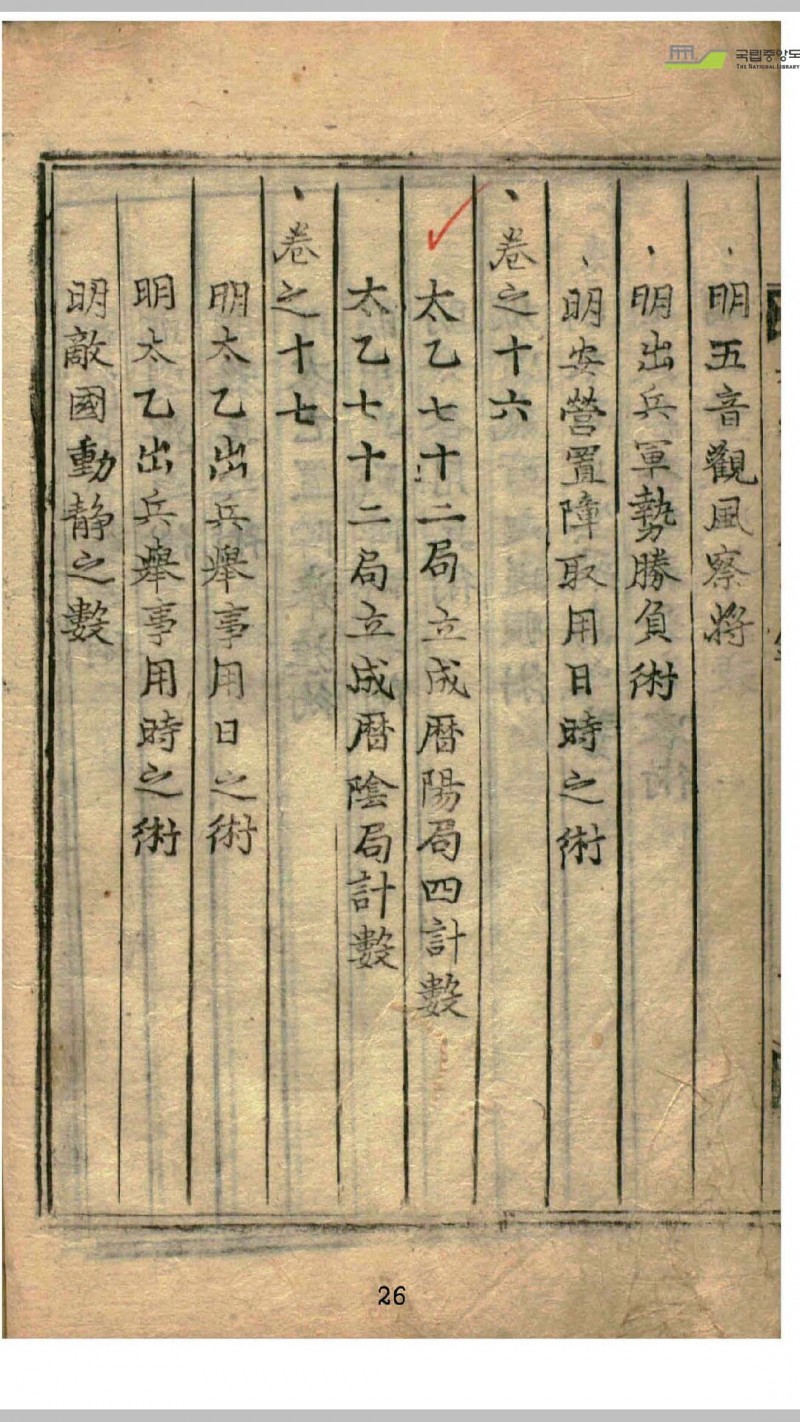 국립중앙도
THE NATIONAL LIBRARY
明五音觀風察將
明出兵軍勢勝負術
明安營置陣取用日時之術
卷之十六
太乙七十二局立成曆陽局四計數
太乙七十二局立成曆陰局計數
卷之十七
明太乙出兵舉事用日之術
明太乙出兵舉事用時之術
明敵國動靜之數
26